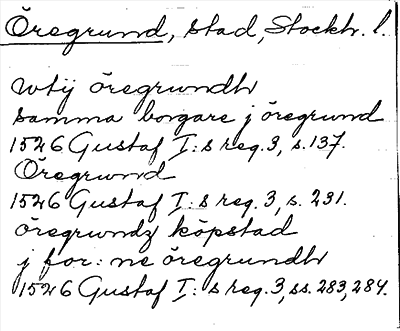 Öregrund, stad, Stockh. l.
wtij öregrundh
samma borgare j öregrund
1526 Gustaf I:s reg. 3, s. 137.
Öregrund
1526 Gustaf I:s reg. 3, s. 231.
öregrundz köpstad
j for: ne öregrundh
1526 Gustaf I:s reg. 3, ss. 283, 284.